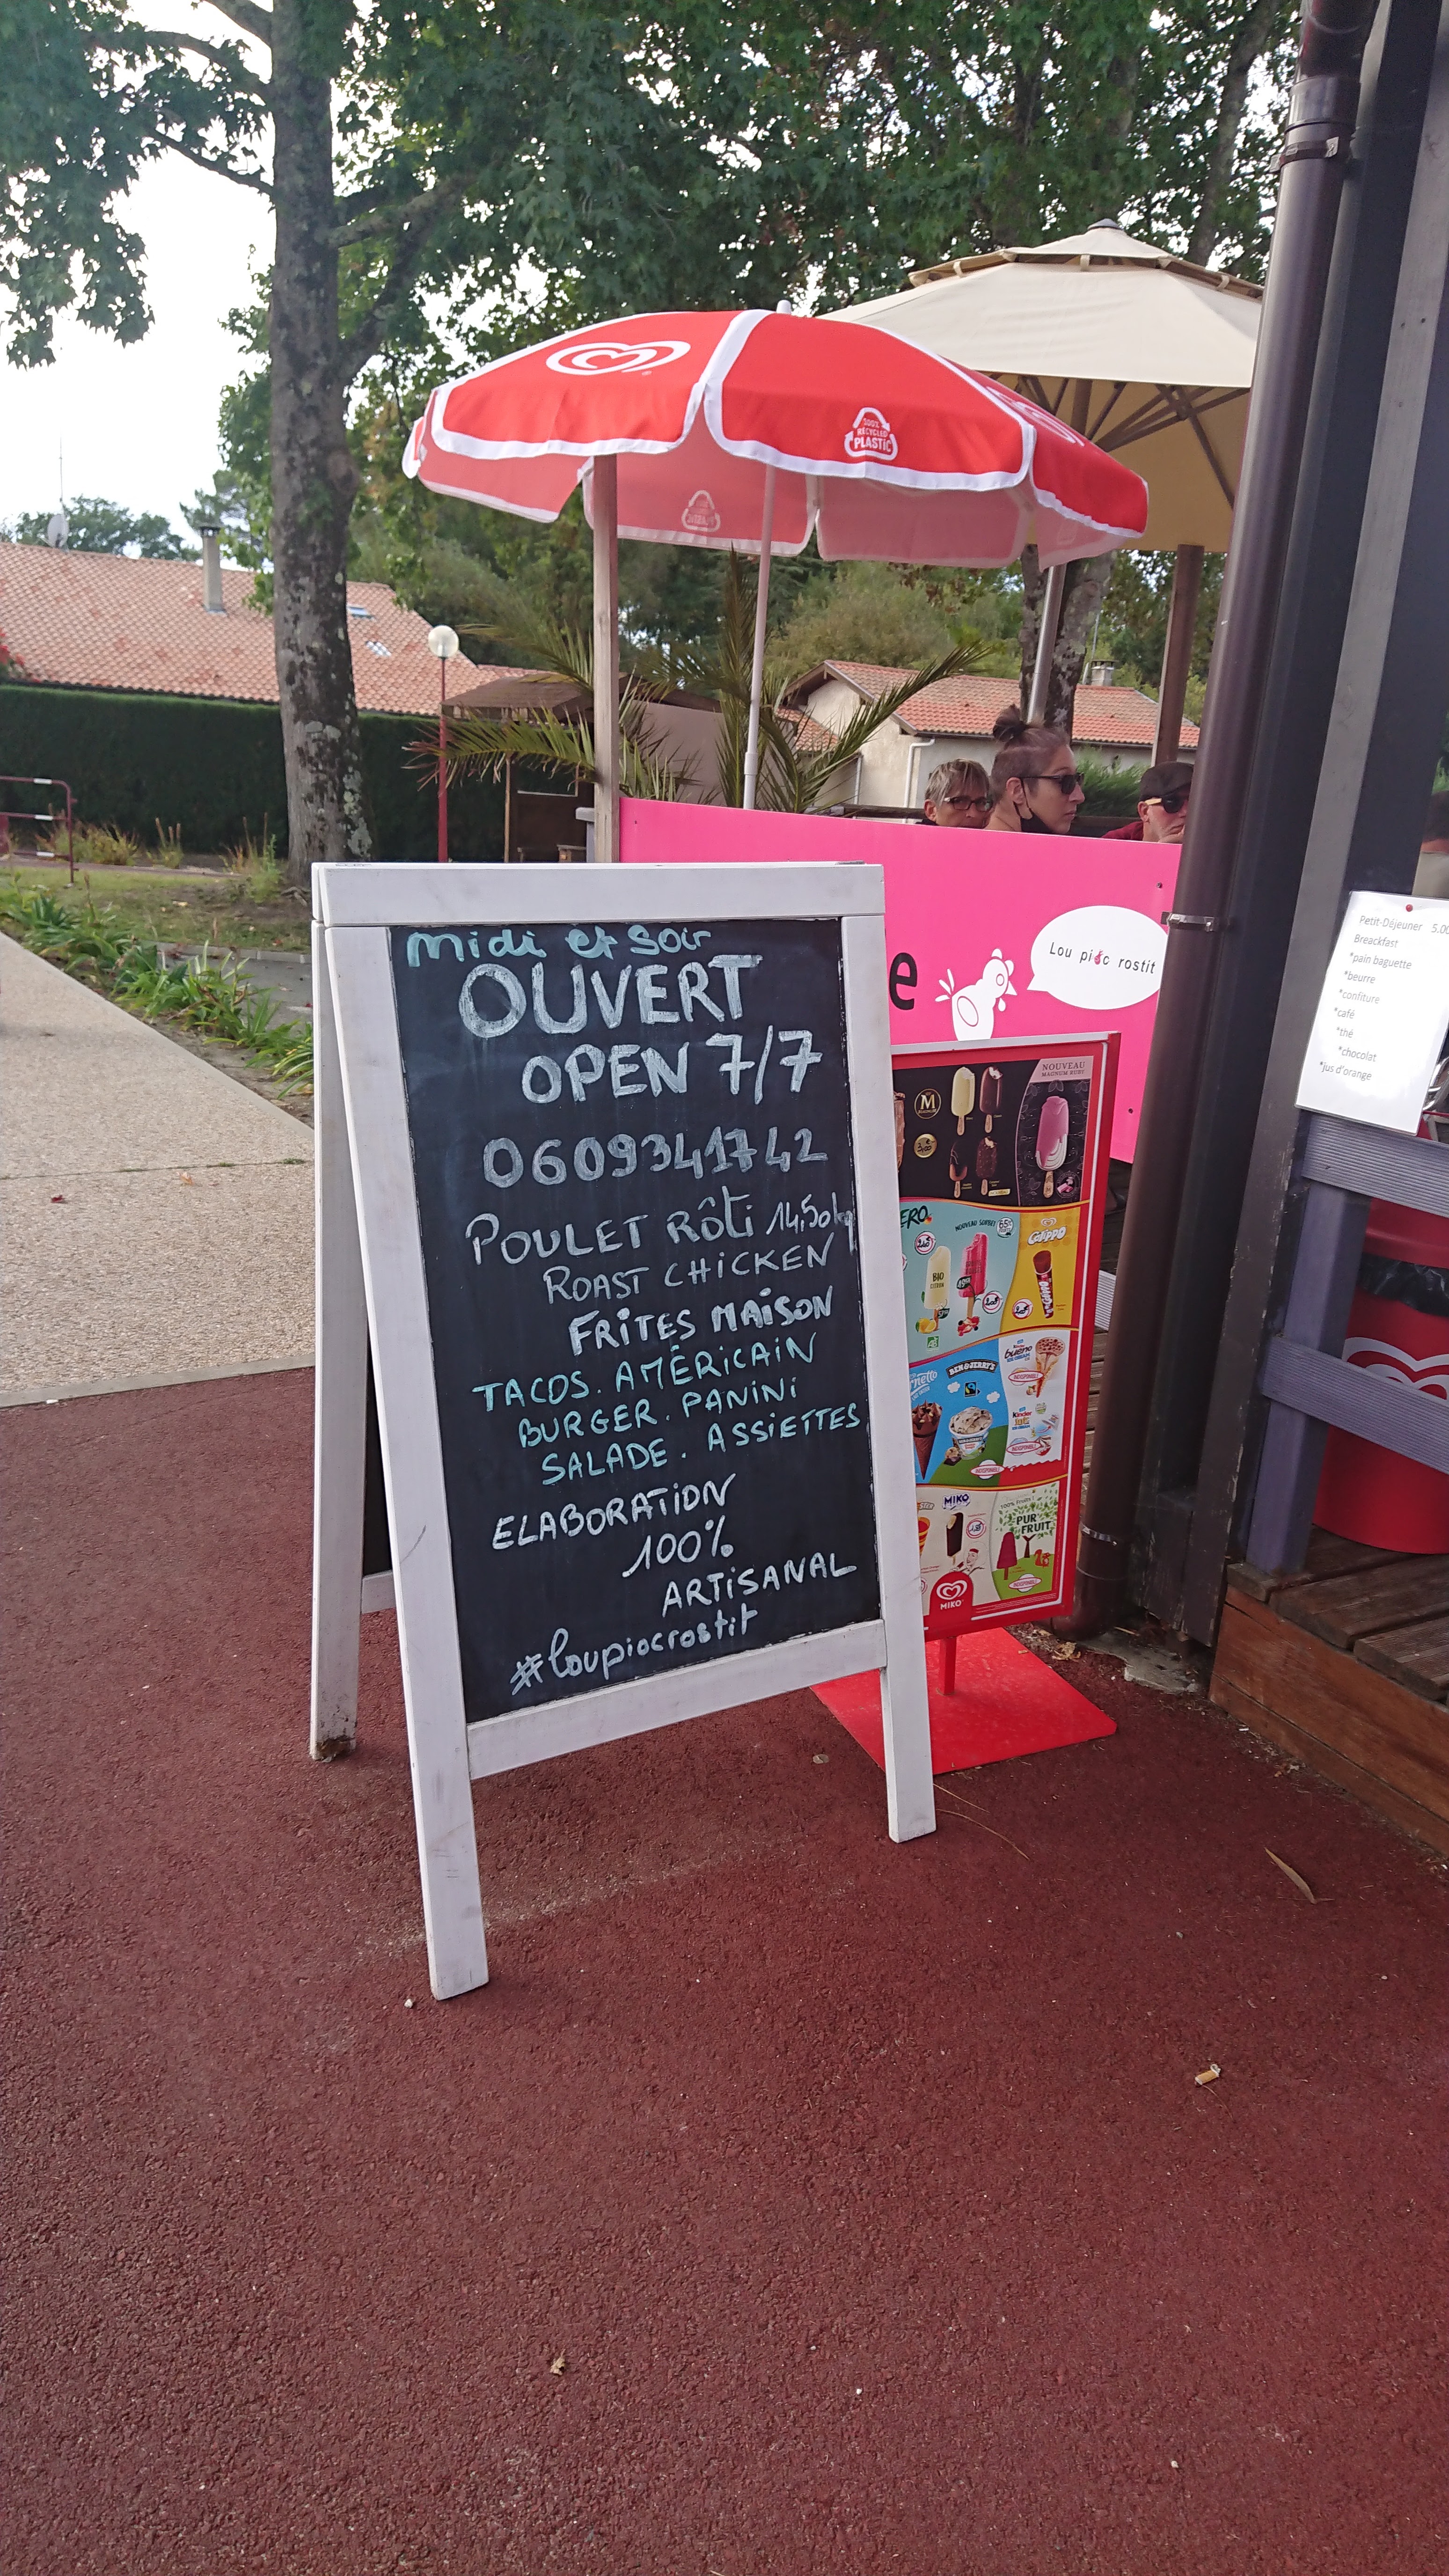 100%
RECYCLED
PLASTIC
midi et soir
OUVERT
OPEN 7/7
0609341742
POULET RÔTi 14,50kg
ROAST CHICKEN
FRITES MAISON
TACOS. AMÉRICAIN
BURGER. PANINI
SALADE. ASSIETTES
ELABORATION
100%
ARTISANAL
#loupiocrostit
e
Lou pioc rostit
Petit-Déjeuner 5.00
Breackfast
*pain baguette
*beurre
*confiture
*café
*thé
*chocolat
*jus d'orange
NOUVEAU
MAGNUM RUBY
M
NOUVEAU SORBET
Calippo
BIO
CITRON
BEN&JERRY'S
bueno
Kinder
INDISPONIBLE
MIKO
100% fruits!
PUR
FRUIT
INDISPONIBLE
MIKO